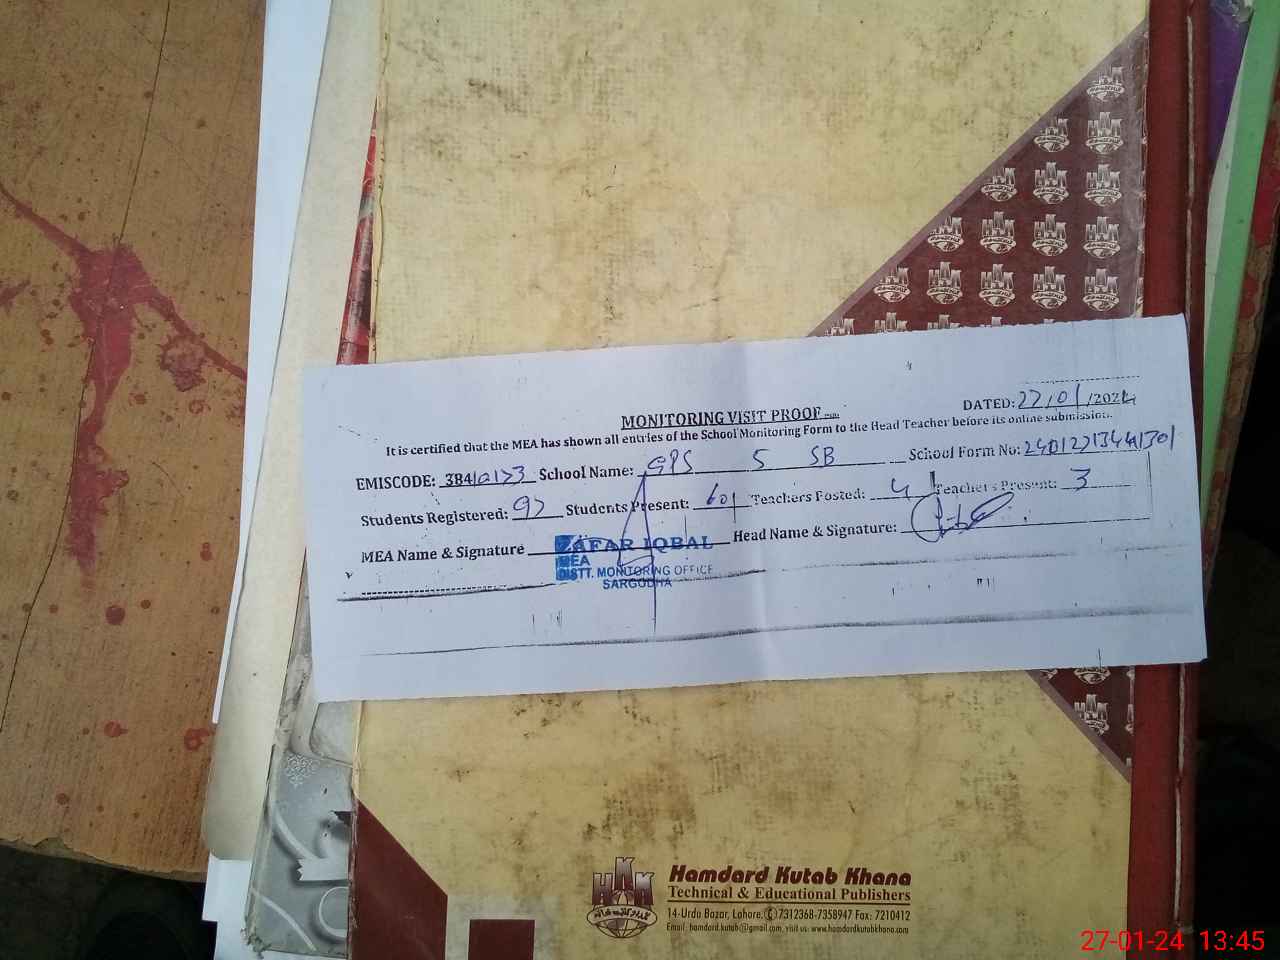 MONITORING VISIT PROOF
DATED: 27/01/2024
It is certified that the MEA has shown all entries of the School Monitoring Form to the Head Teacher before its online submission.
EMISCODE: School Name: GPS 5 SB School Form No:
Students Registered: 97 Students Present: 60 Teachers Posted: 4 Teachers Present: 3
MEA Name & Signature Head Name & Signature:
ZAFAR IQBAL
MEA
DISTT. MONITORING OFFICE
SARGODHA
HKK
Hamdard Kutab Khana
Technical & Educational Publishers
14-Urdu Bazar, Lahore. 7312368-7358947 Fax: 7210412
Email: hamdard.kutab@gmail.com, visit us: www.hamdardkutabkhana.com
27-01-24 13:45